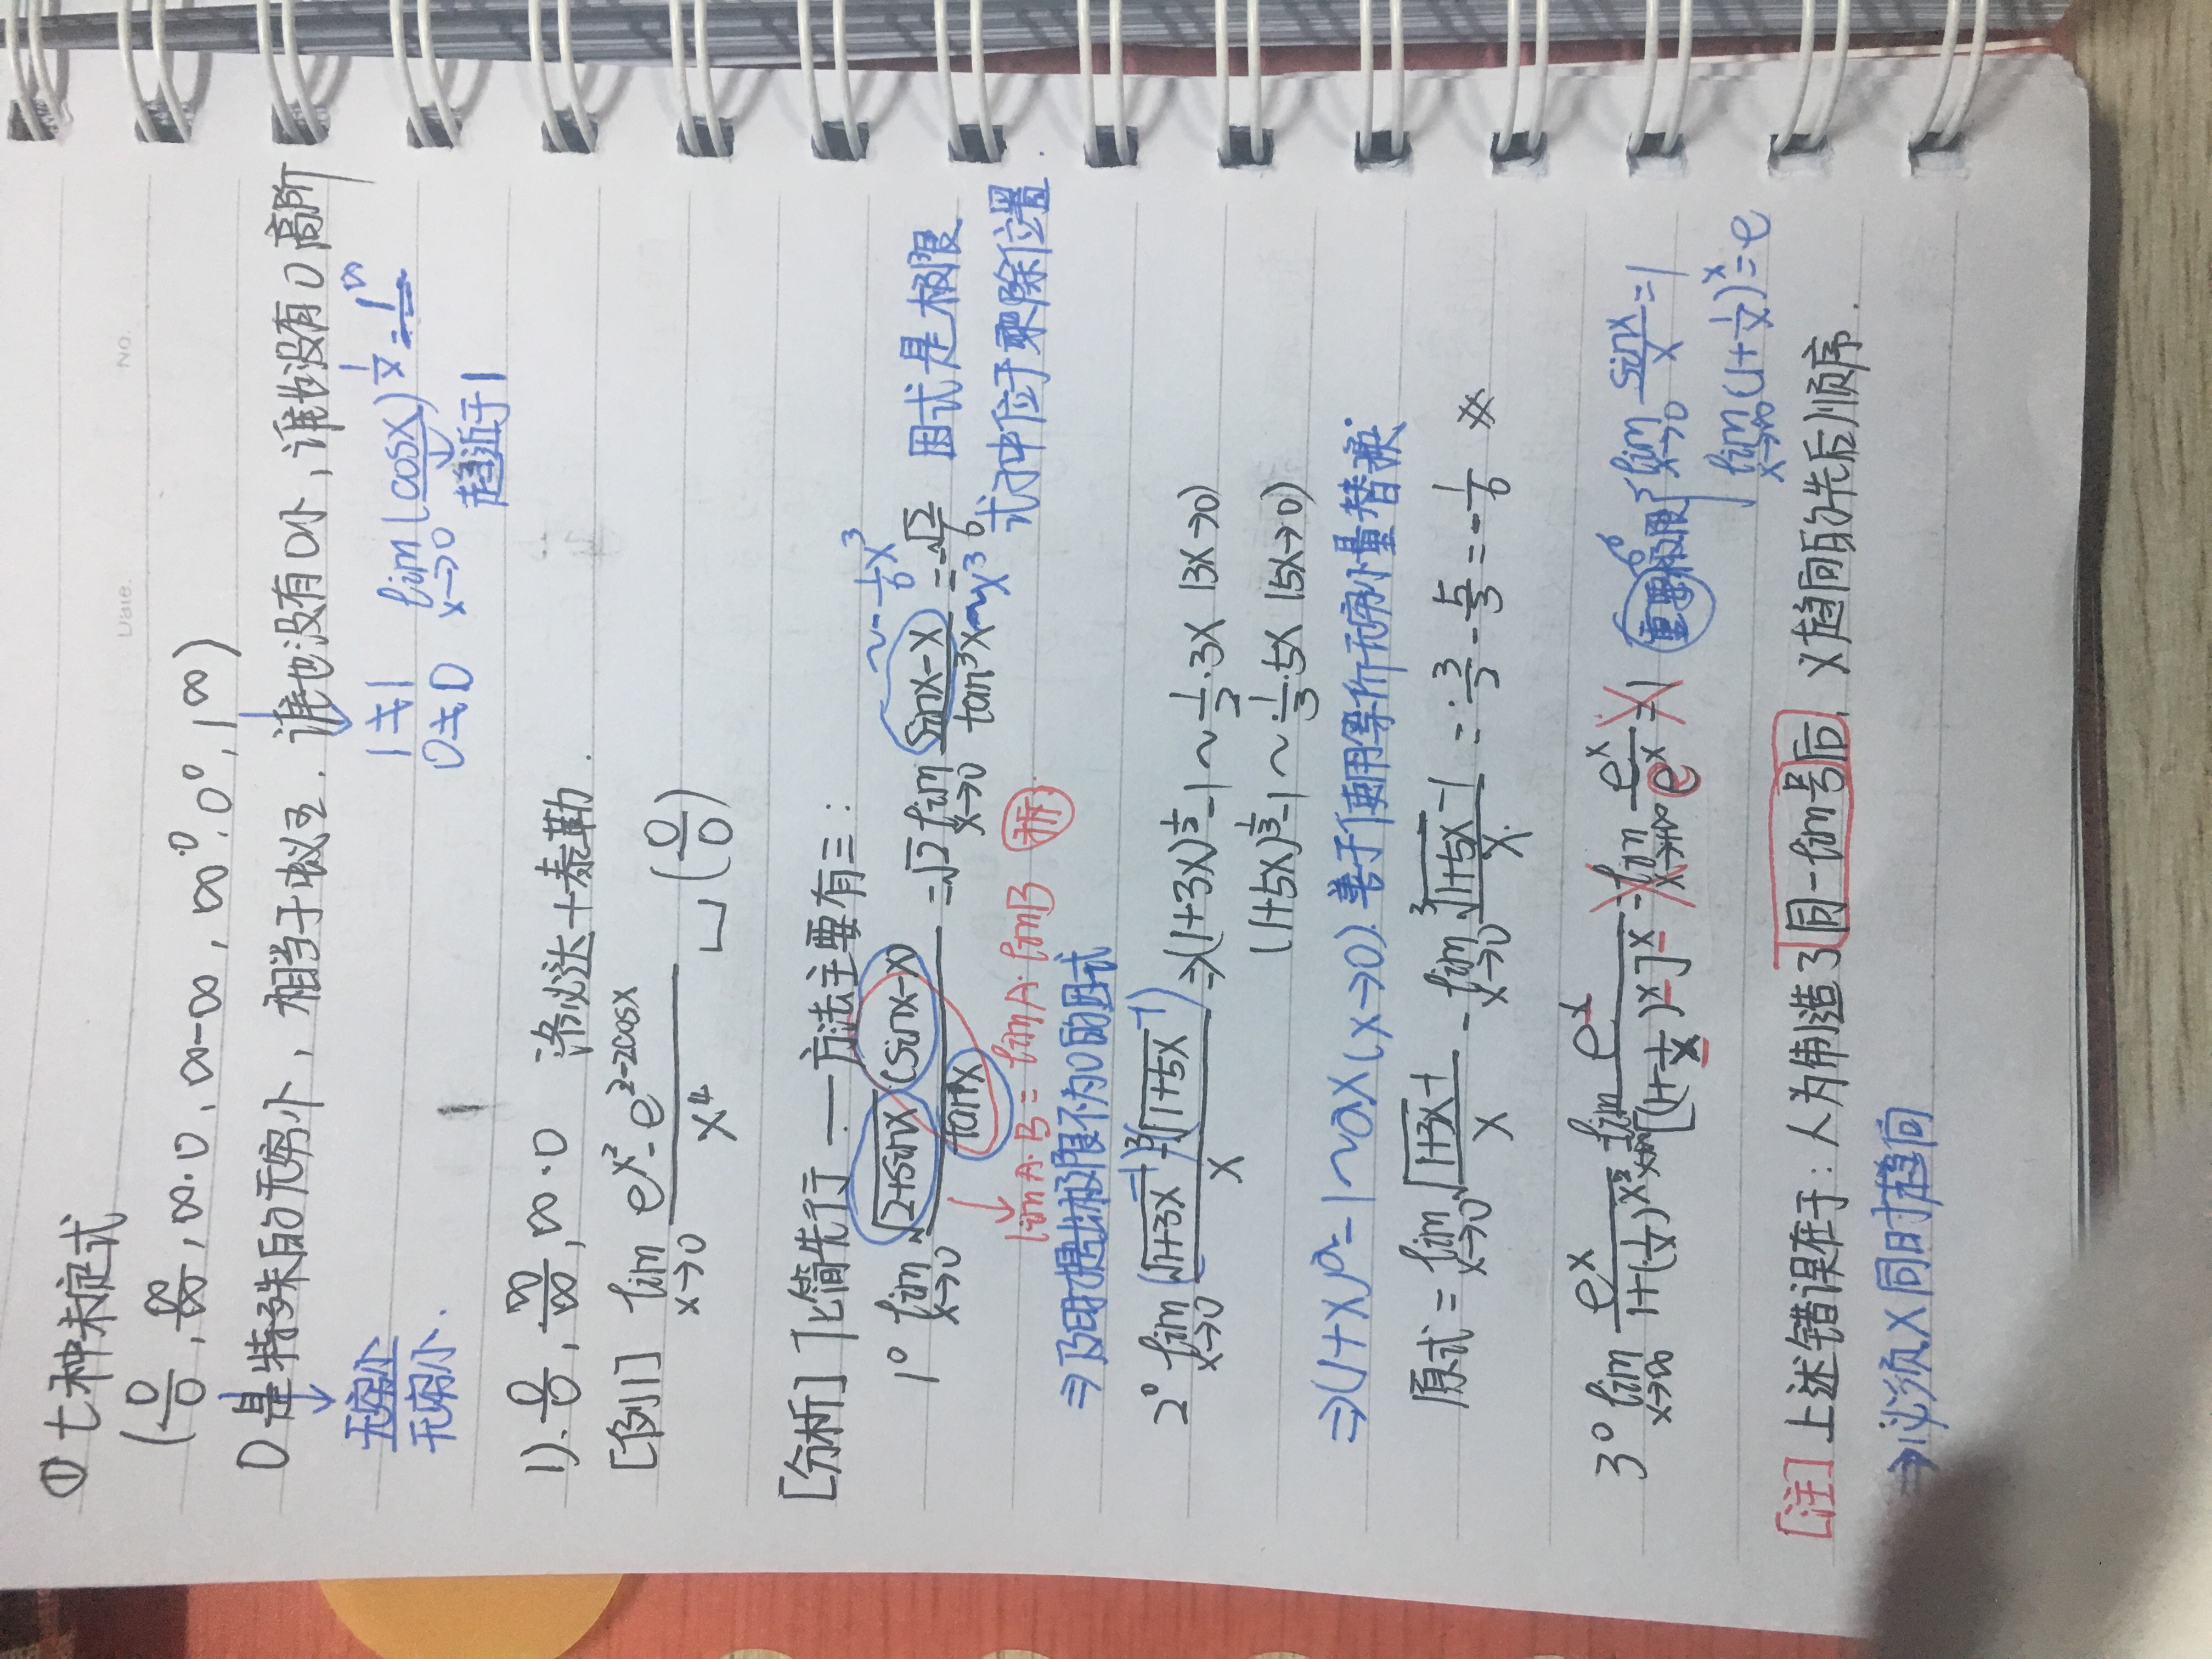 No.
Date.
① 七种未定式
(0/0, ∞/∞, ∞·0, ∞-∞, ∞^0, 0^0, 1^∞)
0是特殊的无穷小, 相当于地板. 谁也没有0小, 谁也没有0高阶
无穷小
无穷小.
1≠1
0≠0
lim x→0 (cosx)^(1/x) = 1^∞
趋近于1
1). 0/0, ∞/∞, ∞·0 洛必达+泰勒.
[例1] lim x→0 (e^(x²) - e^(2-2cosx))/x⁴ (0/0)
[分析] 化简先行——方法主要有三:
1° lim x→0 √(2+sinx) (sinx-x)/tan³x = √2 lim x→0 (sinx-x)/tan³x = -√2/6
~ -1/6 x³
~x³
因式是极限
式子中位于乘除位置.
lim A·B = lim A·lim B 拆
⇒及时提出极限不为0的因式
2° lim x→0 ((√(1+3x) -1) - (³√(1+5x) -1))/x ⇒ (1+3x)^(1/2) -1 ~ 1/2·3x (3x→0)
(1+5x)^(1/3) -1 ~ 1/3·5x (5x→0)
⇒(1+x)^a -1 ~ ax (x→0). 善于使用等价无穷小量替换.
原式 = lim x→0 (√(1+3x) -1)/x - lim x→0 (³√(1+5x) -1)/x = 3/2 - 5/3 = -1/6
3° lim x→∞ e^x/(1+(1/x))^(x²) = lim x→∞ e^x/[(1+1/x)^x]^x = lim x→+∞ e^x/e^x = 1
重要极限 { lim x→0 sinx/x = 1
lim x→∞ (1+1/x)^x = e
[注] 上述错误在于: 人为伪造了同一lim号后, x趋向的先后顺序.
⇒必须x同时趋向